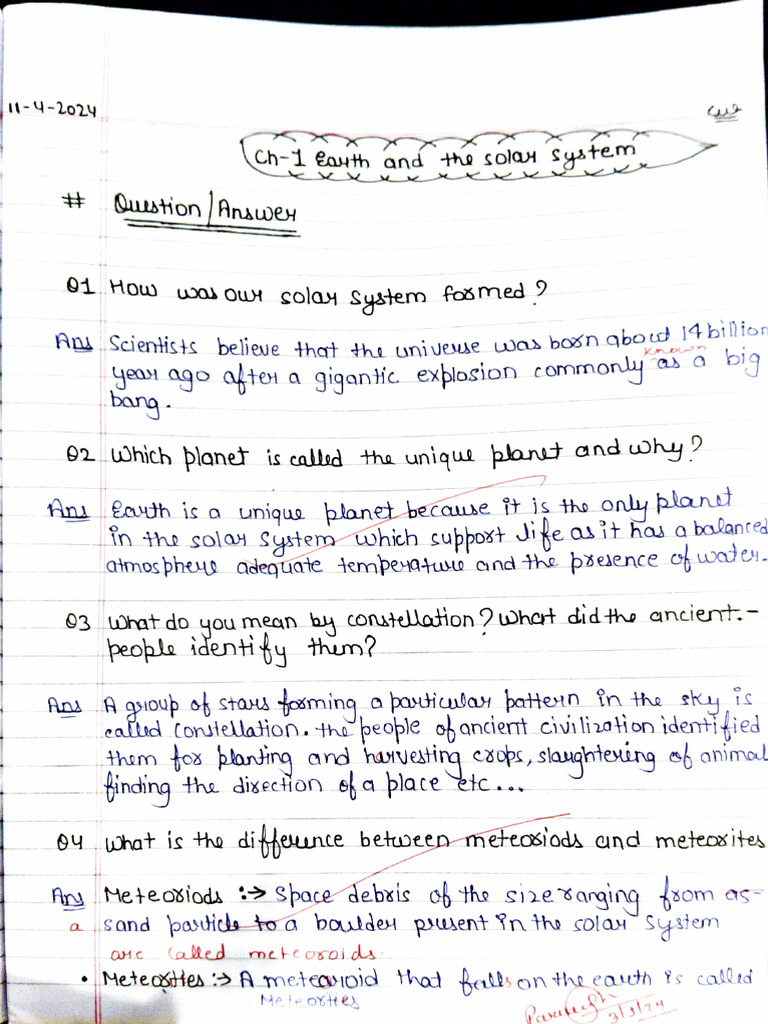 11-4-2024
C.W
Ch-1 Earth and the solar system
# Question/Answer
Q1 How was our solar system formed?
Ans Scientists believe that the universe was born about 14 billion
known
year ago after a gigantic explosion commonly as a big
bang.
Q2 Which planet is called the unique planet and why?
Ans Earth is a unique planet because it is the only planet
in the solar system which support life as it has a balanced
atmosphere adequate temperature and the presence of water.
Q3 What do you mean by constellation? What did the ancient.-
people identify them?
Ans A group of stars forming a particular pattern in the sky is
called constellation. the people of ancient civilization identified
them for planting and harvesting crops, slaughtering of animal
finding the direction of a place etc...
Q4 What is the difference between meteoriods and meteorites
Ans Meteoriods :→ Space debris of the size ranging from as-
a sand particle to a boulder present in the solar system
are called meteoroids.
• Meteorites :→ A metearoid that falls on the earth is called
Meteorites
3/5/24